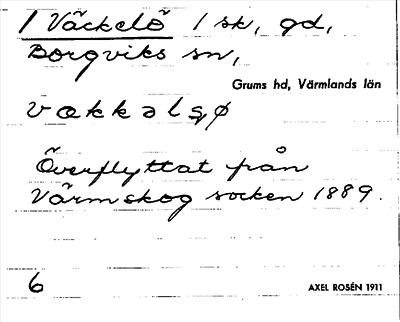 / Väckelö 1 sk, gd,
Borgviks sn,
Grums hd, Värmlands län
Överflyttat från
Värmskog socken 1889.
6
AXEL ROSÉN 1911